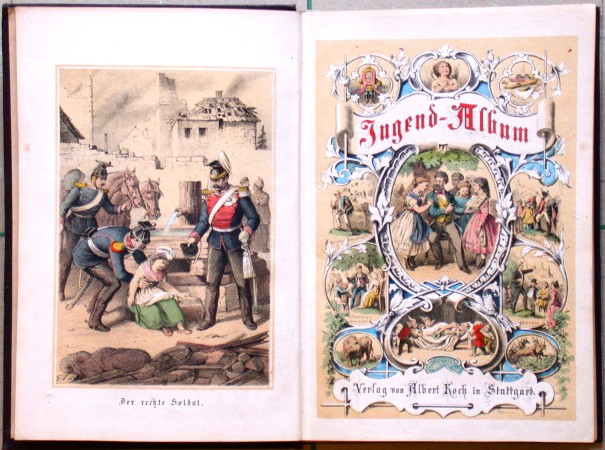 Der rechte Soldat.
Jugend-Album
Verlag von Albert Koch in Stuttgart.